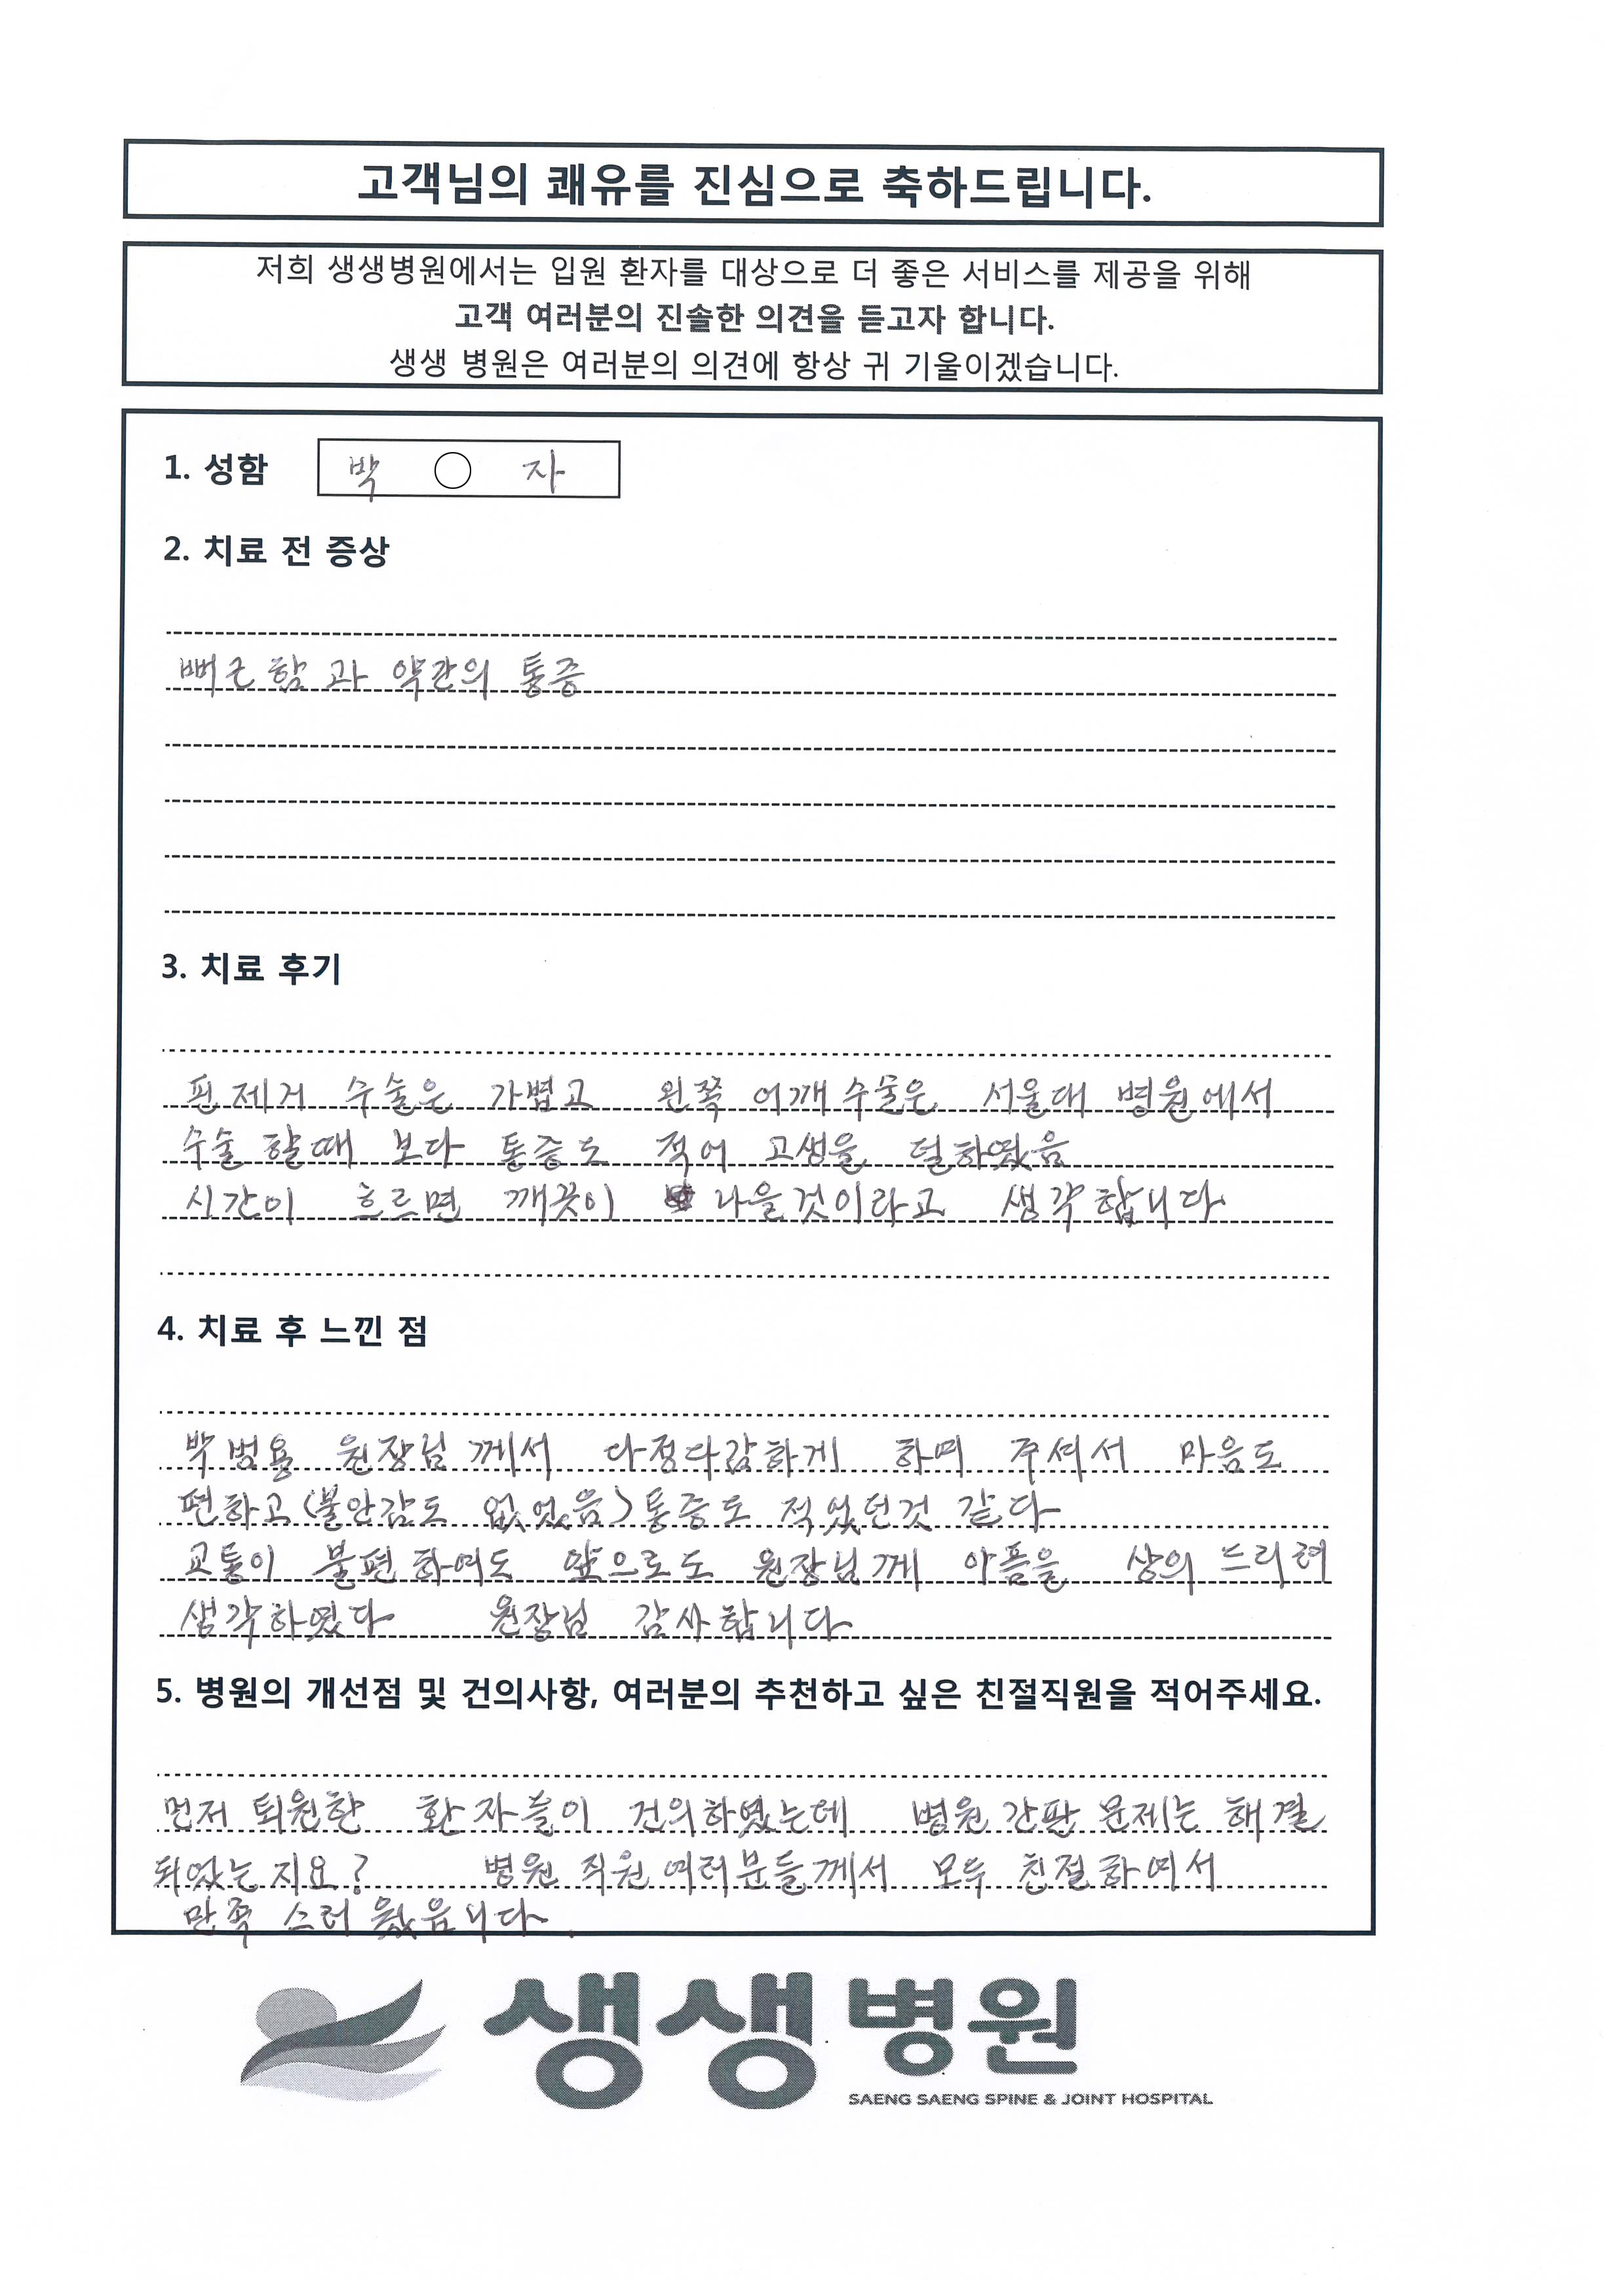 고객님의 쾌유를 진심으로 축하드립니다.
저희 생생병원에서는 입원 환자를 대상으로 더 좋은 서비스를 제공을 위해
고객 여러분의 진솔한 의견을 듣고자 합니다.
생생 병원은 여러분의 의견에 항상 귀 기울이겠습니다.
1. 성함 박 ○ 자
2. 치료 전 증상
뻐근함과 약간의 통증
3. 치료 후기
핀제거 수술은 가볍고 왼쪽 어깨수술은 서울대 병원에서
수술 할때 보다 통증도 적어 고생을 덜하였음
시간이 흐르면 깨끗이 나을것이라고 생각합니다
4. 치료 후 느낀 점
박병용 원장님께서 다정다감하게 하며 주셔서 마음도
편하고(불안감도 없었음)통증도 적었던것 같다
교통이 불편하여도 앞으로도 원장님께 아픔을 상의 드리려
생각하였다 원장님 감사합니다
5. 병원의 개선점 및 건의사항, 여러분의 추천하고 싶은 친절직원을 적어주세요.
먼저 퇴원한 환자들이 건의하였는데 병원 간판 문제는 해결
되었는지요? 병원 직원여러분들께서 모두 친절하여서
만족 스러웠읍니다.
생생병원
SAENG SAENG SPINE & JOINT HOSPITAL